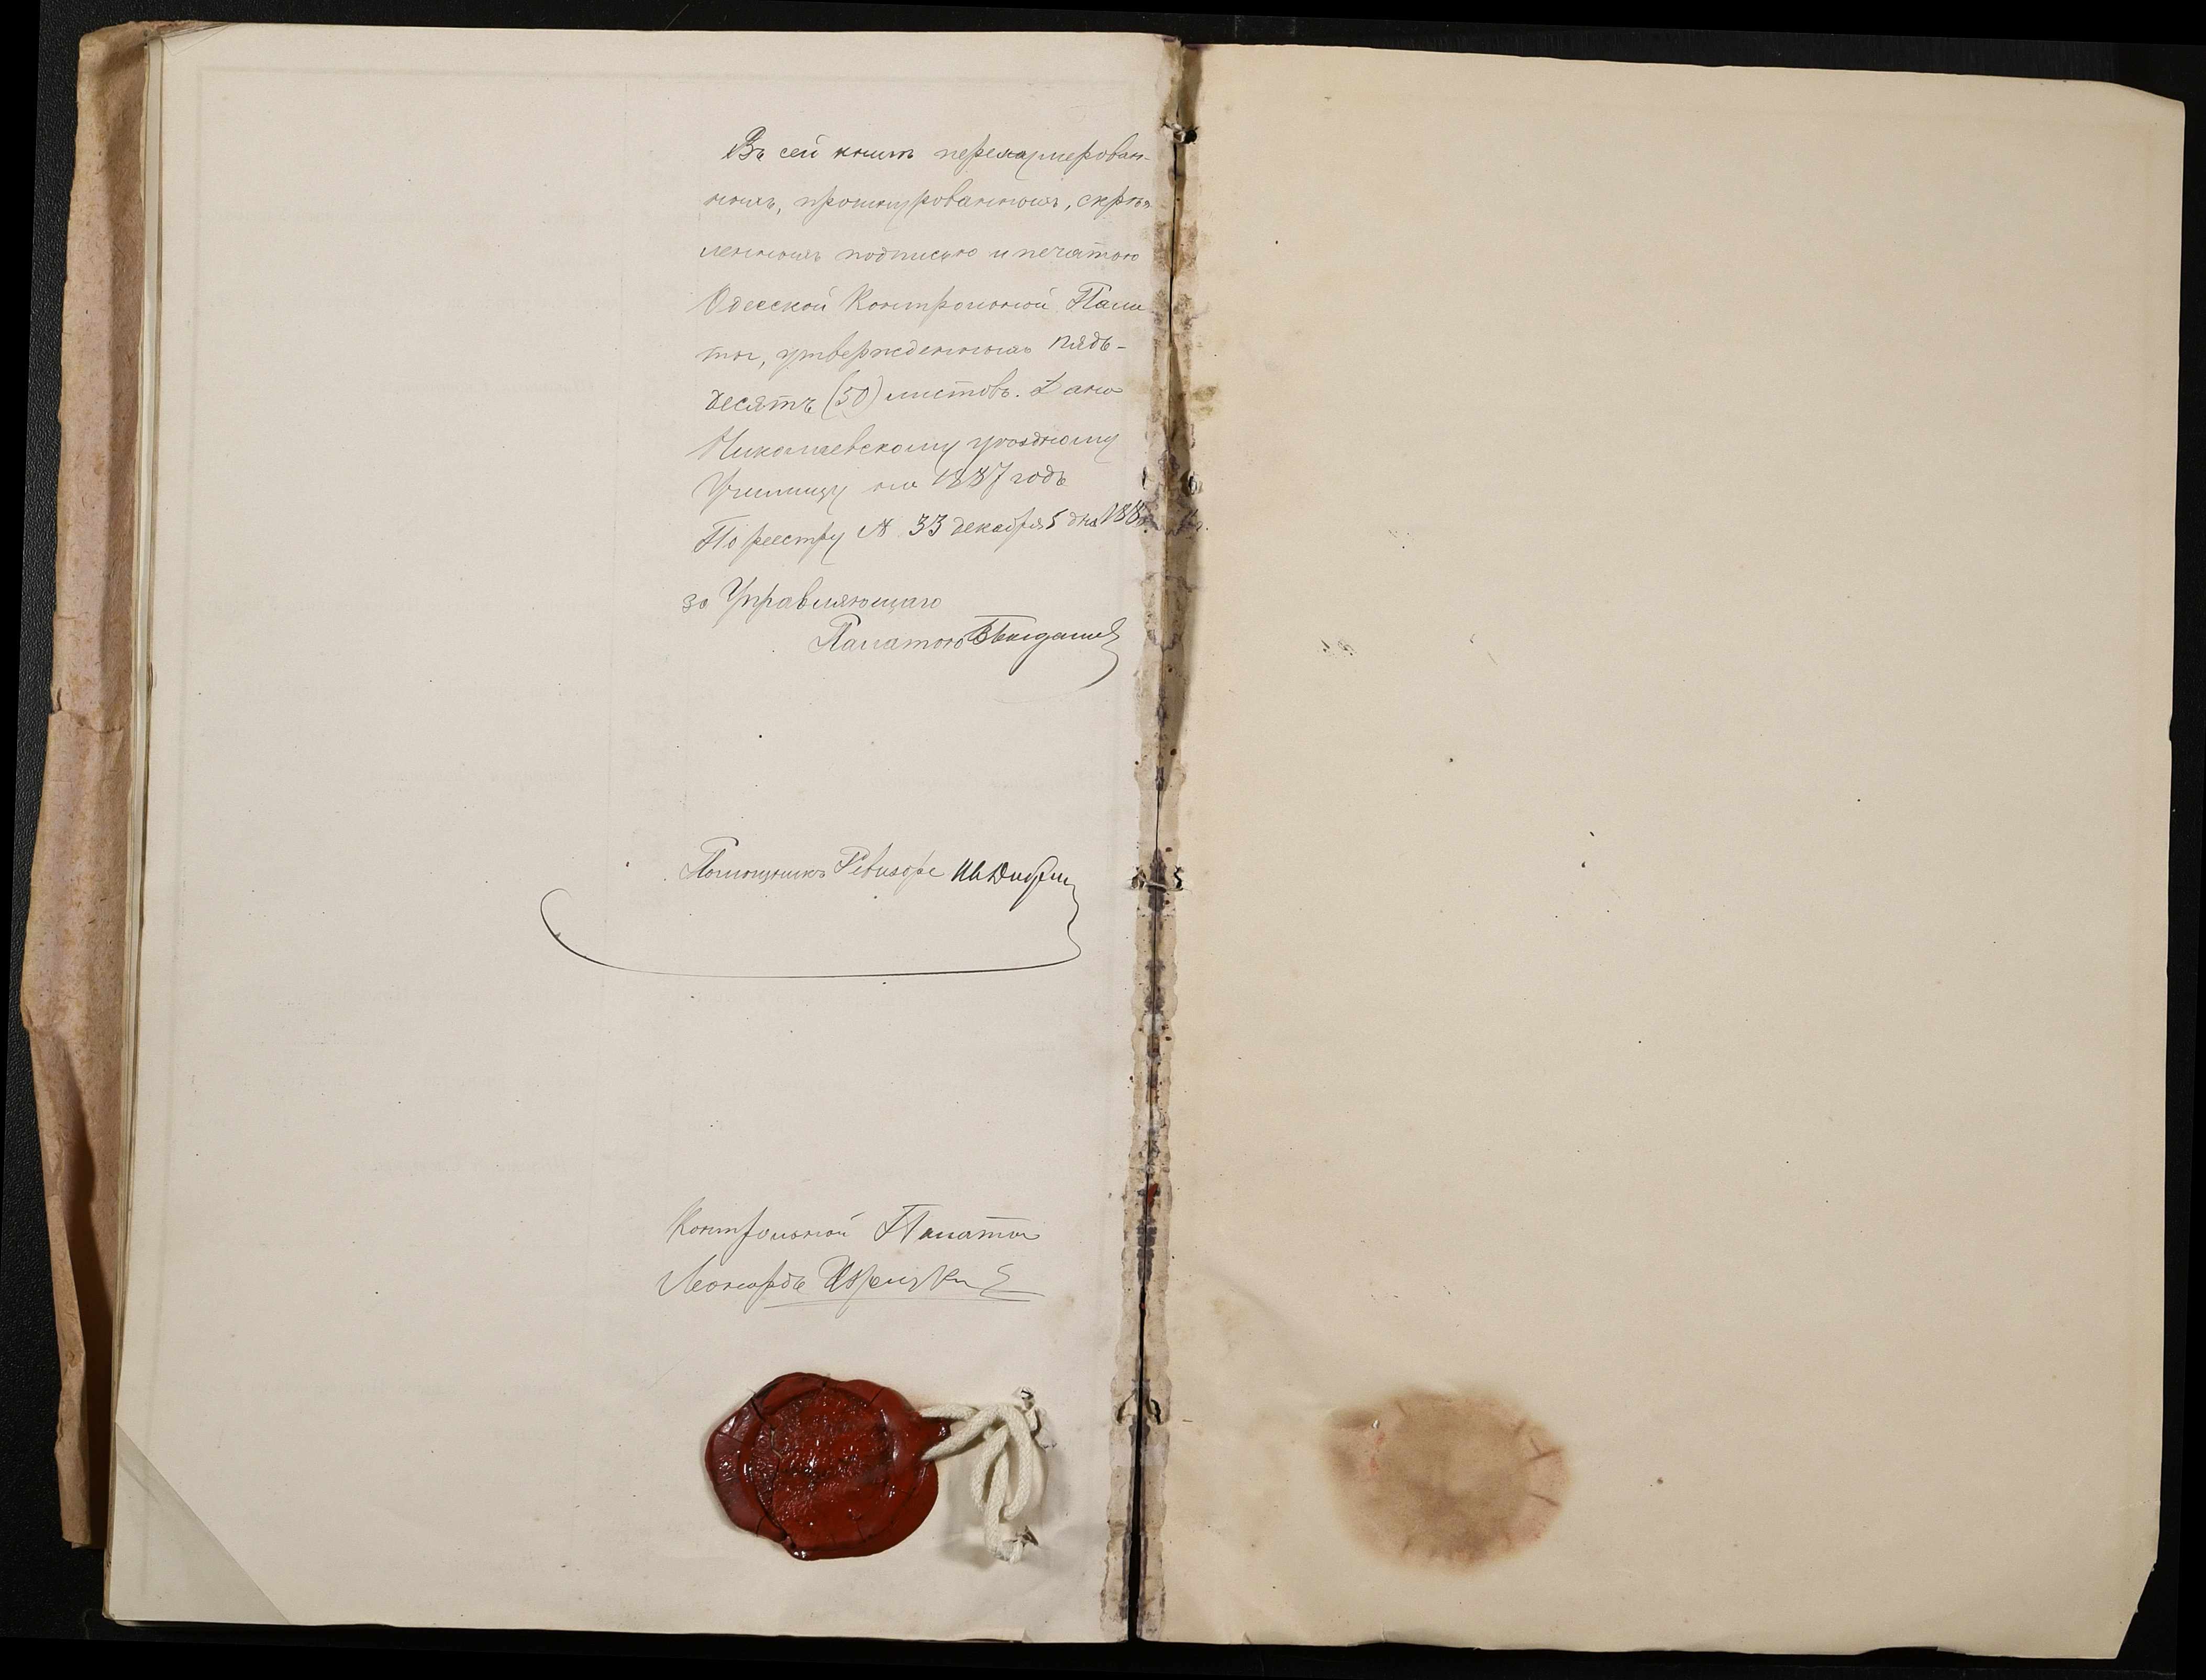 Въ сей книгѣ перенумерован-
ныхъ, прошнурованныхъ, скрѣп
ленныхъ подписью и печатью
Одесской Контрольной Пала
ты, утвержденныхъ пядь-
десятъ (50) листовъ. Дана
Николаевскому уѣздному
Училищу на 1887 годъ
По реестру № 33 декабря 5 дня 188
за Управляющаго
Палатою
Помощникъ Ревизора
Контрольной Палаты
Леонардъ